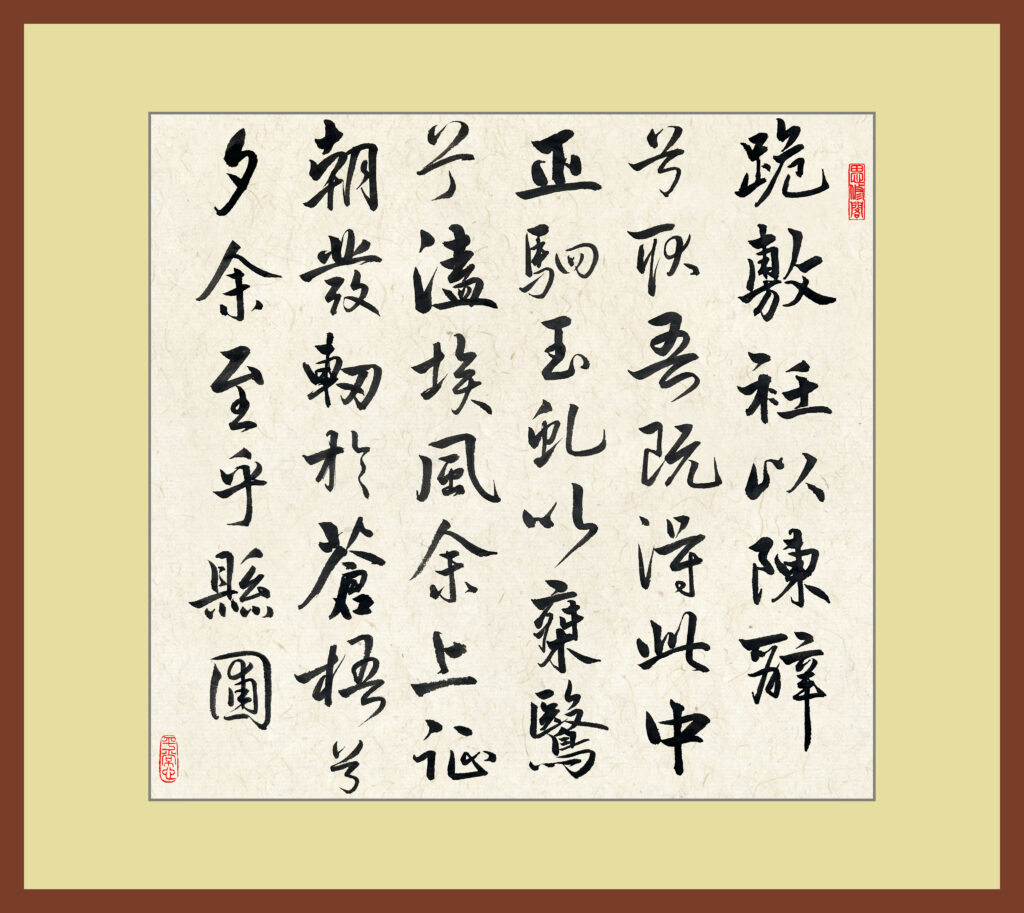 思修閣
跪敷衽以陳辭
兮耿吾既得此中
正駟玉虬以椉鷖
兮溘埃風余上征
朝發軔於蒼梧兮
夕余至乎縣圃
平常心